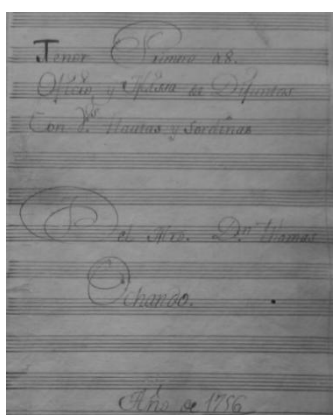 Tenor Primero a 8.
Oficio, y Missa de Difuntos
Con Vs. flautas y Sordinas
Del Mro. Dn. Thomas
Ochando.
Año de 1756